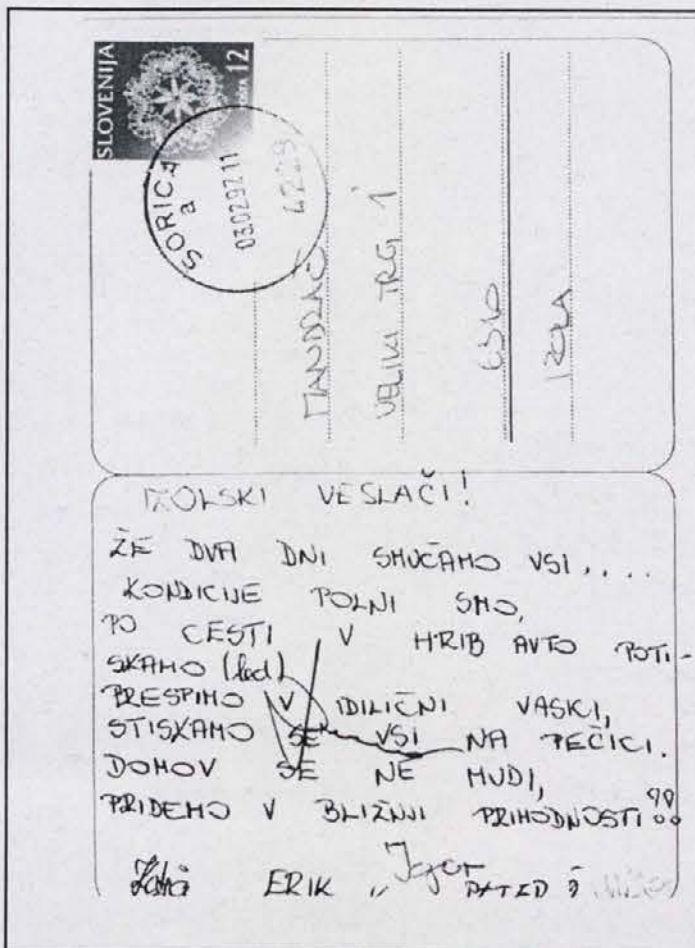 SLOVENIJA
12
SORICA
a
03.02.92.11
4228
MANDRAČ
VELIKI TRG 1
IZOLA
IZOLSKI VESLAČI!
ŽE DVA DNI SMUČAMO VSI....
KONDICIJE POLNI SMO,
PO CESTI V HRIB AVTO POTI-
SKAMO (led)
PRESPIMO V IDILIČNI VASKI,
STISKAMO SE VSI NA PEČICI.
DOMOV SE NE MUDI,
PRIDEMO V BLIŽNJI PRIHODNOSTI!!
ERIK Igor